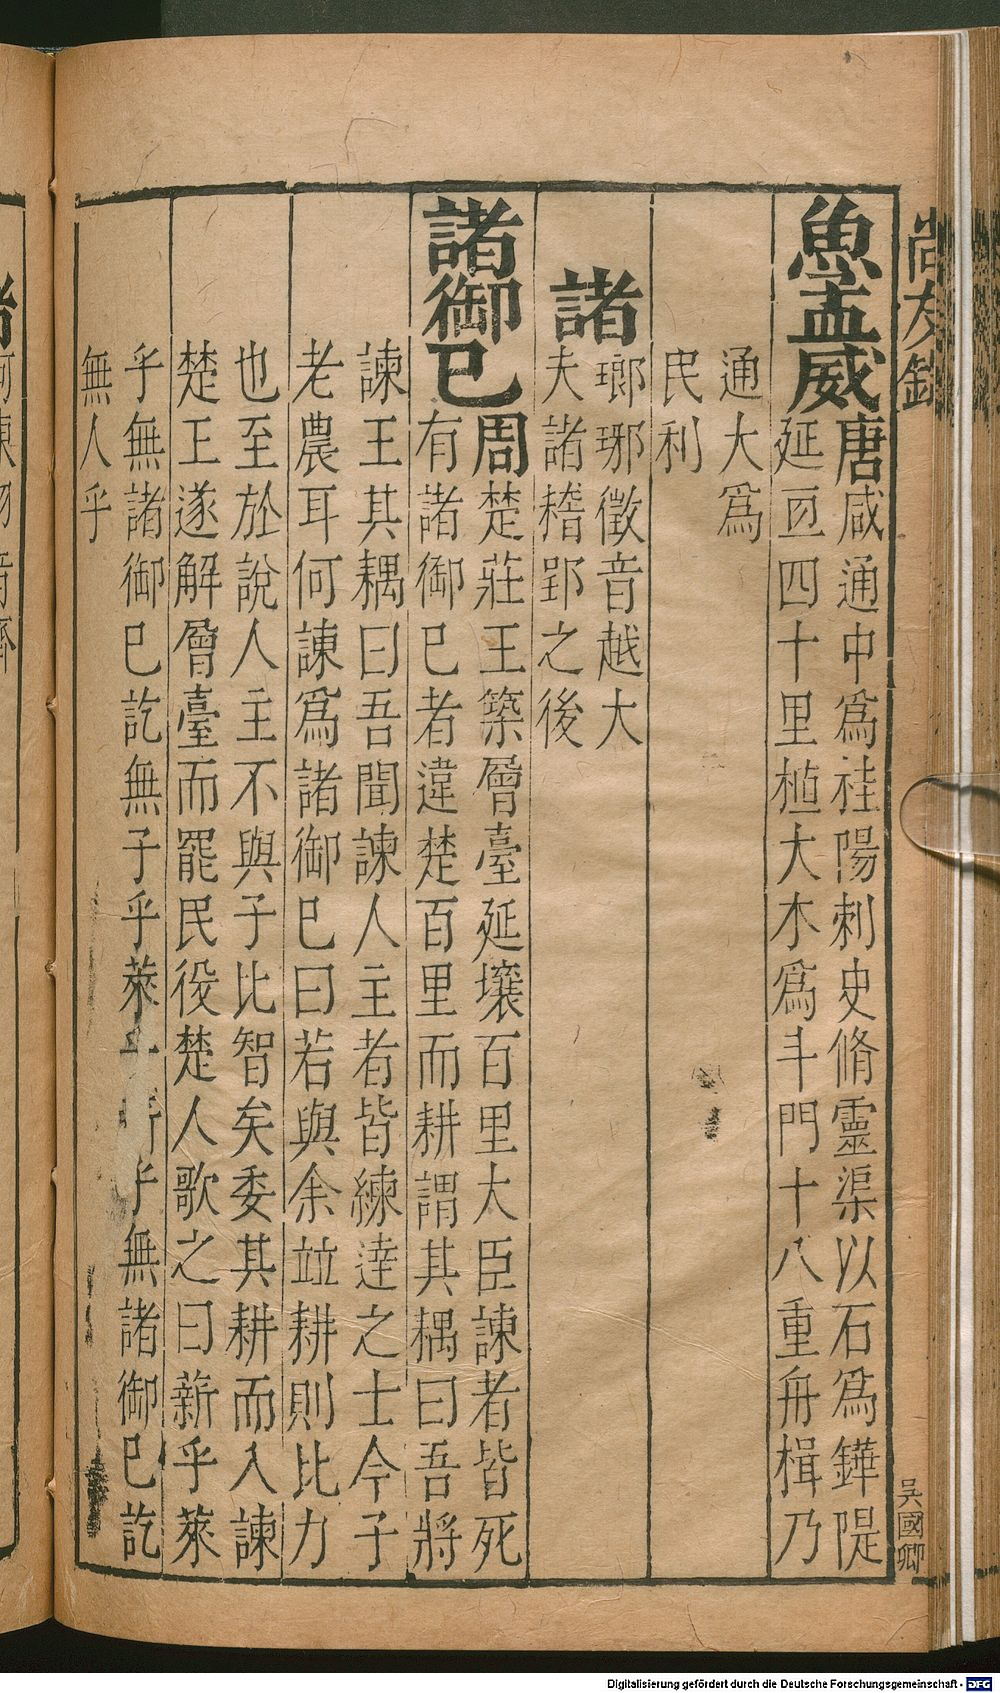 尚友錄
吳國卿
魚孟威唐咸通中爲桂陽刺史脩靈渠以石爲鏵隄
延亙四十里植大木爲斗門十八重舟楫乃
通大爲
民利
諸瑯琊徵音越大
夫諸稽郢之後
諸御已周楚莊王築層臺延壤百里大臣諫者皆死
有諸御已者違楚百里而耕謂其耦曰吾將
諫王其耦曰吾聞諫人主者皆練達之士今子
老農耳何諫爲諸御已曰若與余竝耕則比力
也至於說人主不與子比智矣委其耕而入諫
楚王遂解層臺而罷民役楚人歌之曰薪乎萊
乎無諸御已訖無子乎萊乎薪乎無諸御已訖
無人乎
Digitalisierung gefördert durch die Deutsche Forschungsgemeinschaft - DFG